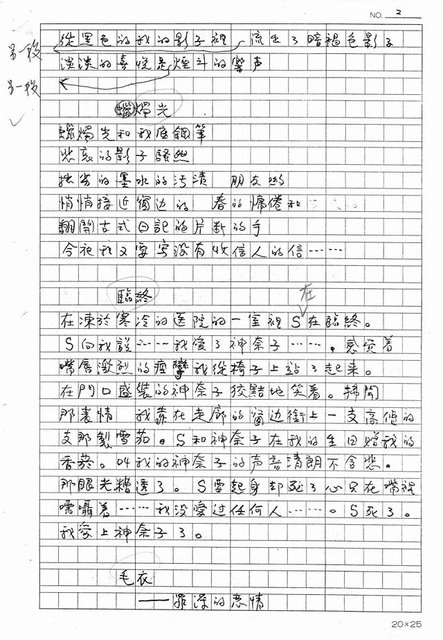 NO. 2
另一段
從黑色的我的影子裡 流出了暗褐色影子
淡淡的喜悅是煙斗的聲声
另一段
蠟燭光
蠟燭光和我底鋼筆
紫
的影子
拙劣的墨水的污漬 朋友
悄悄接近窗边的 春的 倦和
翻開古式日記的片断的手
今夜我又要寫没有收信人的信……
臨終
在
在凍於寒冷的医院的一室裡S在臨終。
S向我說……我愛了神奈子……。感觉着
嘴唇激烈的痙攣我從椅子上站了起来。
在門口盛裝的神奈子狡黠地笑着。拂開
那表情 我靠在走廊的窗边街上一支高価的
支那製雪茄。S和神奈子在我的生日贈我的
香菸。叫我的神奈子的声音清朗不含悲。
那眼光糟透了。S要起身却死了心只在嘴裡
囁嚅着……我没愛过任何人……。S死了。
我愛上神奈子了。
毛衣
——
的恋情
20×25